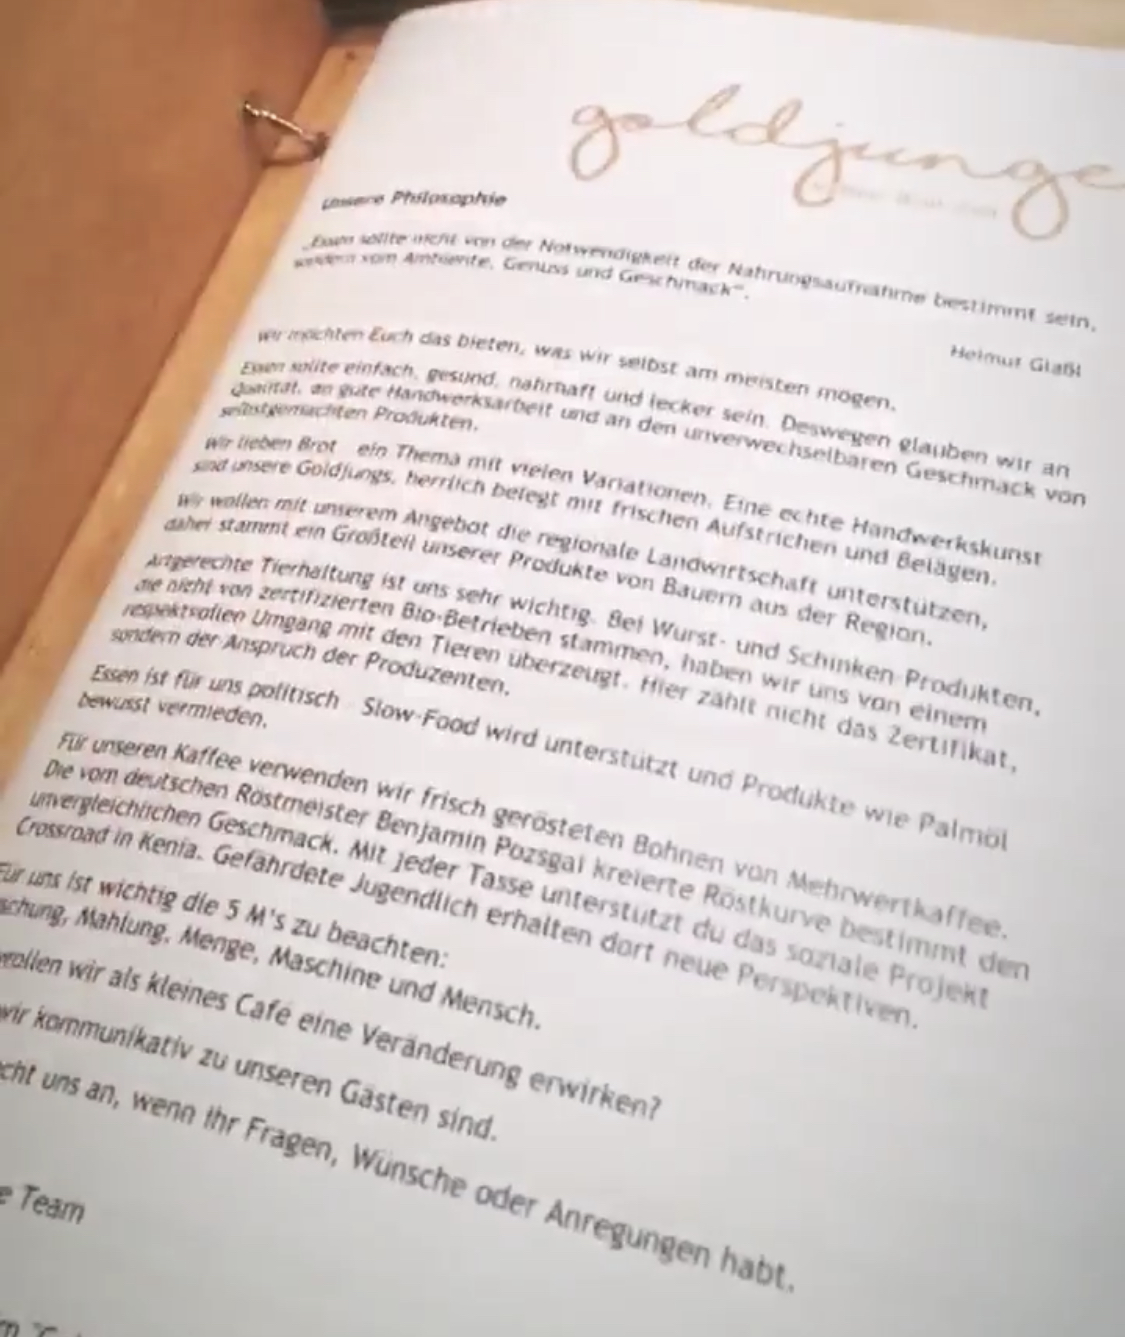 goldjunge
Unsere Philosophie
„Essen sollte nicht von der Notwendigkeit der Nahrungsaufnahme bestimmt sein,
sondern vom Ambiente, Genuss und Geschmack“.
Helmut Glaßl
Wir möchten Euch das bieten, was wir selbst am meisten mögen.
Essen sollte einfach, gesund, nahrhaft und lecker sein. Deswegen glauben wir an
Qualität, an gute Handwerksarbeit und an den unverwechselbaren Geschmack von
selbstgemachten Produkten.
Wir lieben Brot ein Thema mit vielen Variationen. Eine echte Handwerkskunst
sind unsere Goldjungs, herrlich belegt mit frischen Aufstrichen und Belägen.
Wir wollen mit unserem Angebot die regionale Landwirtschaft unterstützen,
daher stammt ein Großteil unserer Produkte von Bauern aus der Region.
Artgerechte Tierhaltung ist uns sehr wichtig. Bei Wurst- und Schinken-Produkten,
die nicht von zertifizierten Bio-Betrieben stammen, haben wir uns von einem
respektvollen Umgang mit den Tieren überzeugt. Hier zählt nicht das Zertifikat,
sondern der Anspruch der Produzenten.
Essen ist für uns politisch Slow-Food wird unterstützt und Produkte wie Palmöl
bewusst vermieden.
Für unseren Kaffee verwenden wir frisch gerösteten Bohnen von Mehrwertkaffee.
Die vom deutschen Röstmeister Benjamin Pozsgai kreierte Röstkurve bestimmt den
unvergleichlichen Geschmack. Mit jeder Tasse unterstützt du das soziale Projekt
Crossroad in Kenia. Gefährdete Jugendlich erhalten dort neue Perspektiven.
Für uns ist wichtig die 5 M's zu beachten:
schung, Mahlung, Menge, Maschine und Mensch.
wollen wir als kleines Café eine Veränderung erwirken?
wir kommunikativ zu unseren Gästen sind.
cht uns an, wenn Ihr Fragen, Wünsche oder Anregungen habt.
e Team